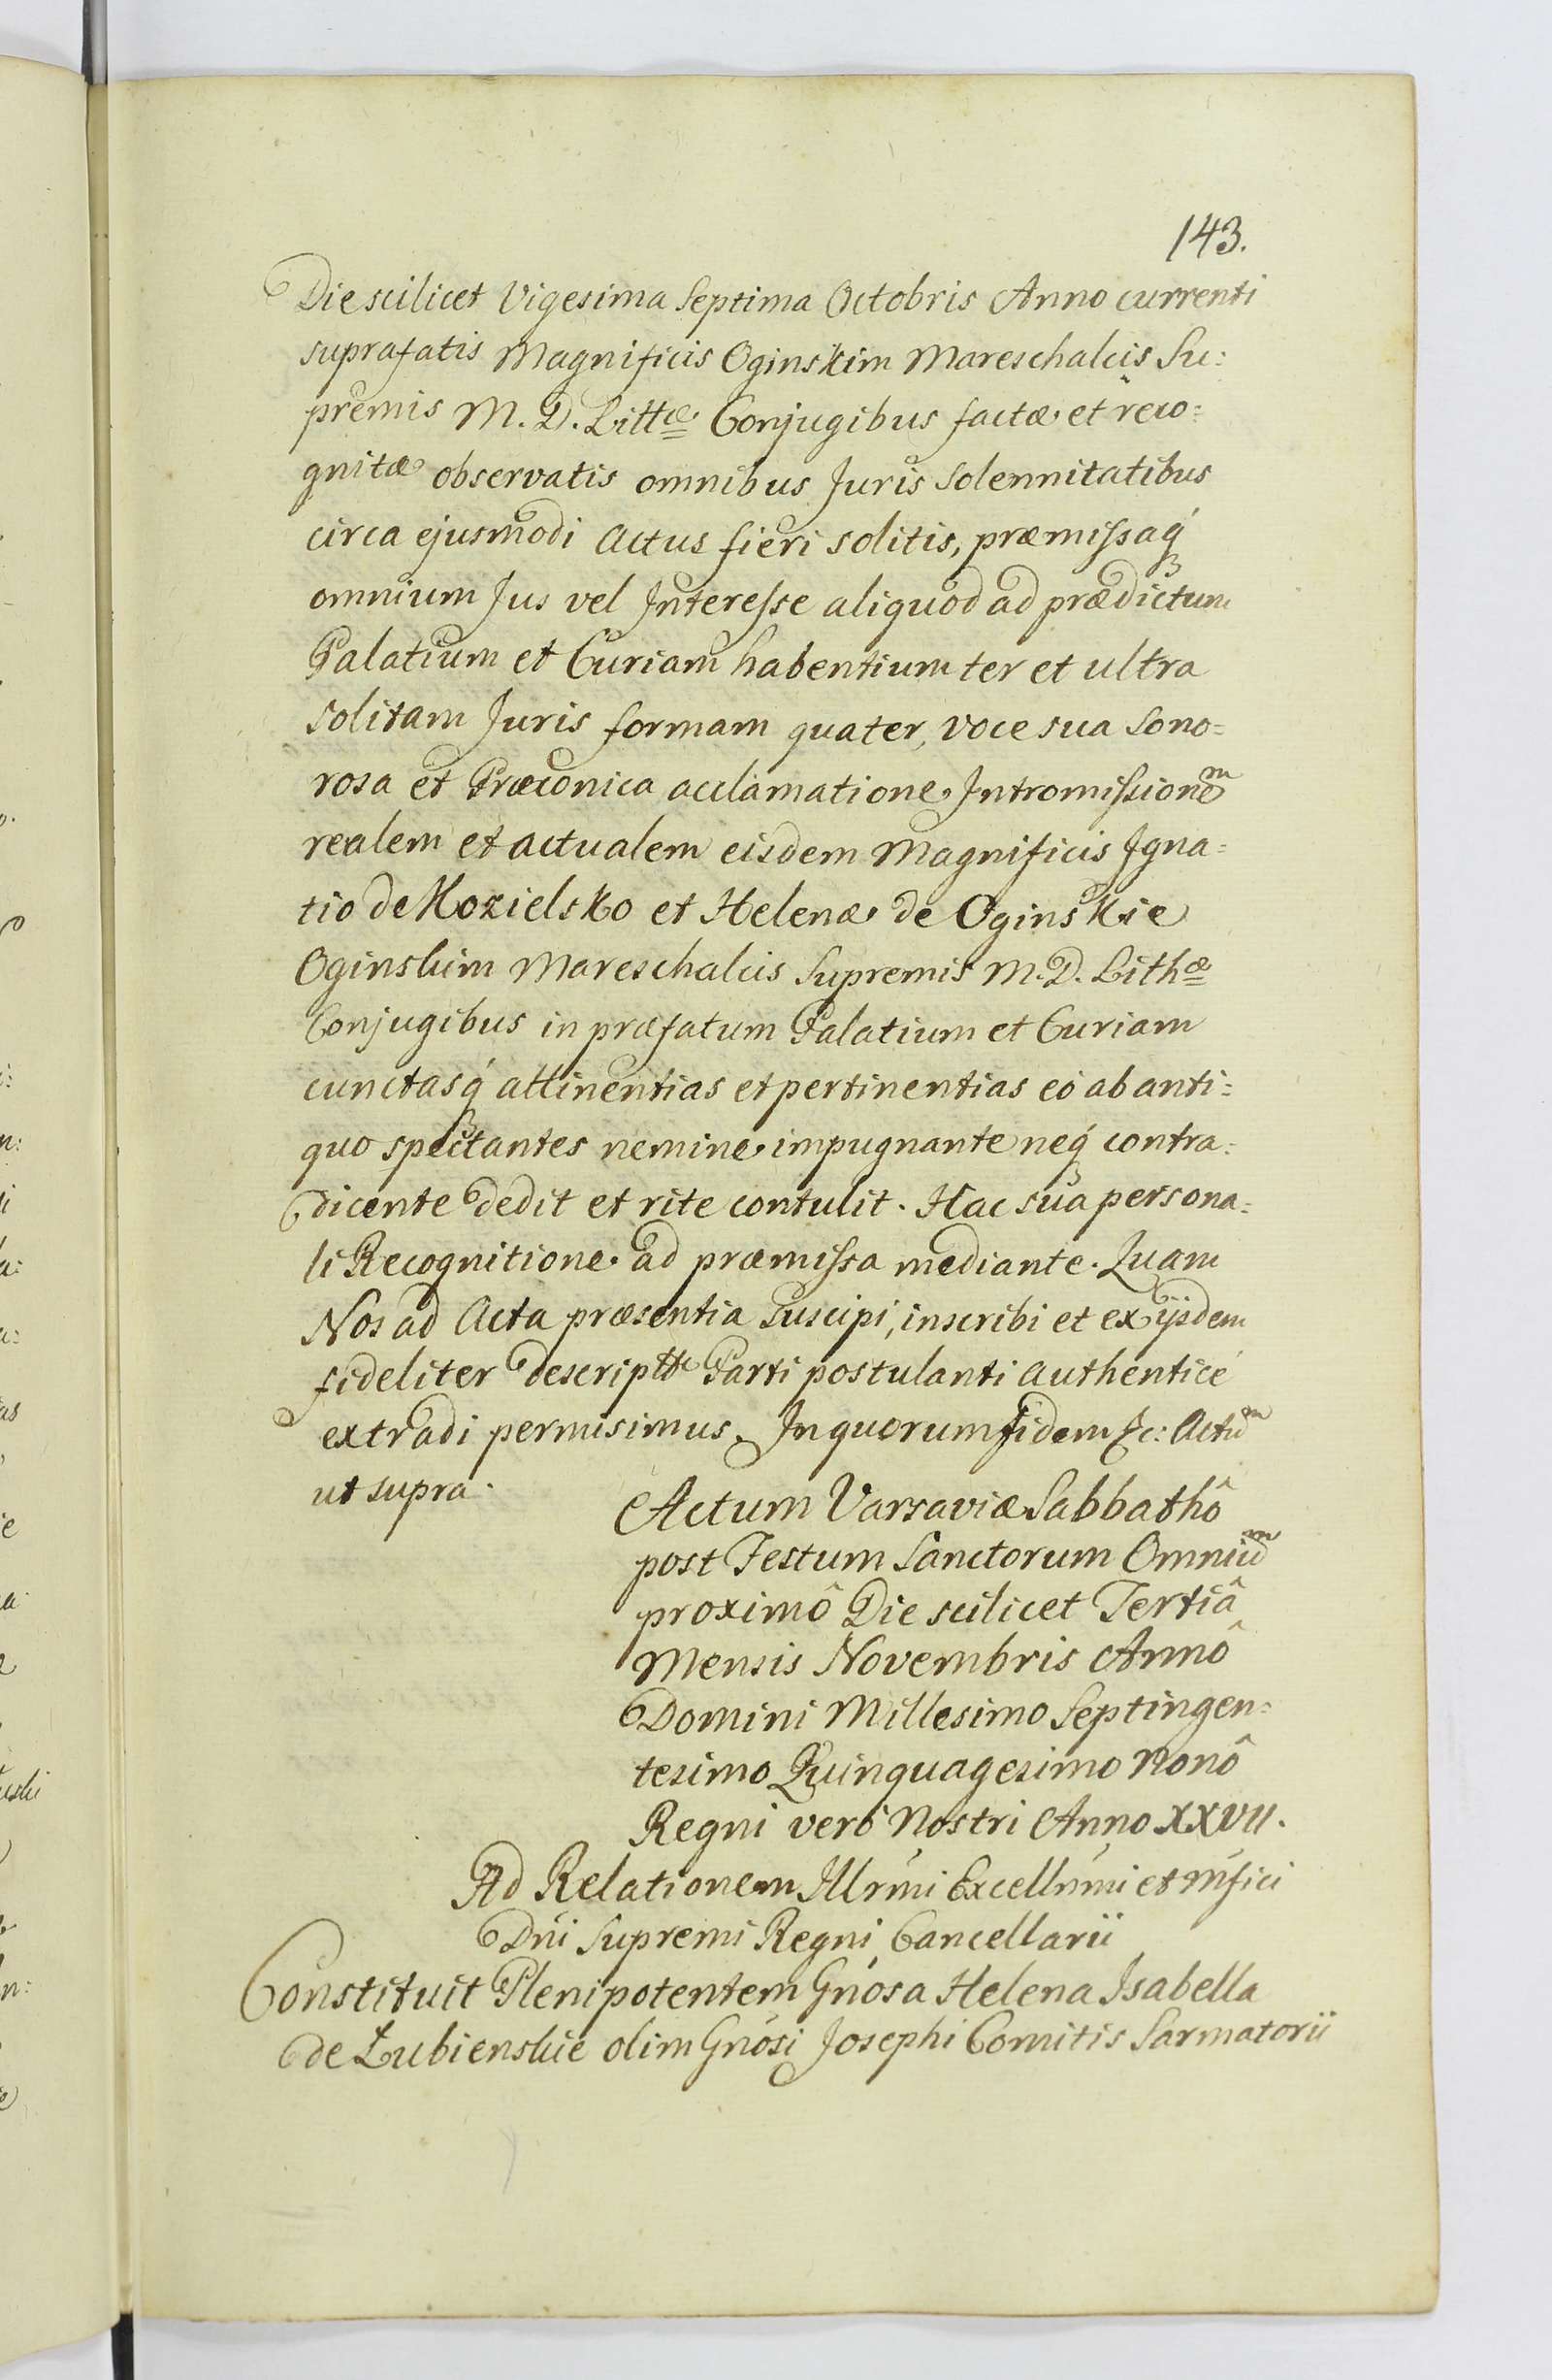 143.
Die scilicet Vigesima Septima Octobris Anno currenti
suprafatis Magnificis Oginskim Mareschalcis Su:
premis M. D. Littæ Conjugibus factæ et reco:
gnitæ observatis omnibus Juris Solennitatibus
circa ejusmodi Actus fieri solitis, præmissaq́ꝫ
omnium Jus vel Interesse aliquod ad prædictum
Palatium et Curiam habentium ter et ultra
solitam Juris formam quater, voce sua Sono=
rosa et Præconica acclamatione Intromissionem
realem et actualem eisdem Magnificis Igna=
tio de Kozielsko et Helenæ de Oginskie
Oginskim Mareschalcis Supremis M. D. Lithæ
Conjugibus in præfatum Palatium et Curiam
cunctasq́ꝫ attinentias et pertinentias eó ab anti=
quo spectantes nemine impugnante neq́ꝫ contra=
dicente dedit et rite contulit. Hac sua persona=
li Recognitione ad præmissa mediante. Quam
Nos ad Acta præsentia suscipi, inscribi et ex ijsdem
fideliter descriptte Parti postulanti authenticé
extradi permisimus. In quorum fidem &c: Actum
ut supra.
Actum Varsaviæ Sabbathô
post Festum Sanctorum Omnium
proximô Die scilicet Tertiâ
Mensis Novembris Annô
Domini Millesimo Septingen=
tesimo Quinquagesimo Nonô
Regni veró Nostri Anno XXVII.
Ad Relationem Illrmi Excellnmi et Mfici
Dni Supremi Regni Cancellarii
Constituit Plenipotentem Gnosa Helena Isabella
de Łubienskie olim Gnosi Josephi Comitis Sarmatorii